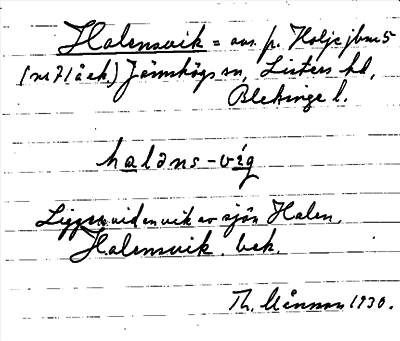 Halensvik = avs. p. Holje jbnr 5
(nr 7 i åek.) Jämshögs sn, Listers hd,
Blekinge l.
halǝns-vi̇́g
Ligger vid en vik av sjön Halen.
Halensvik. bek.
Th. Månsson 1930.